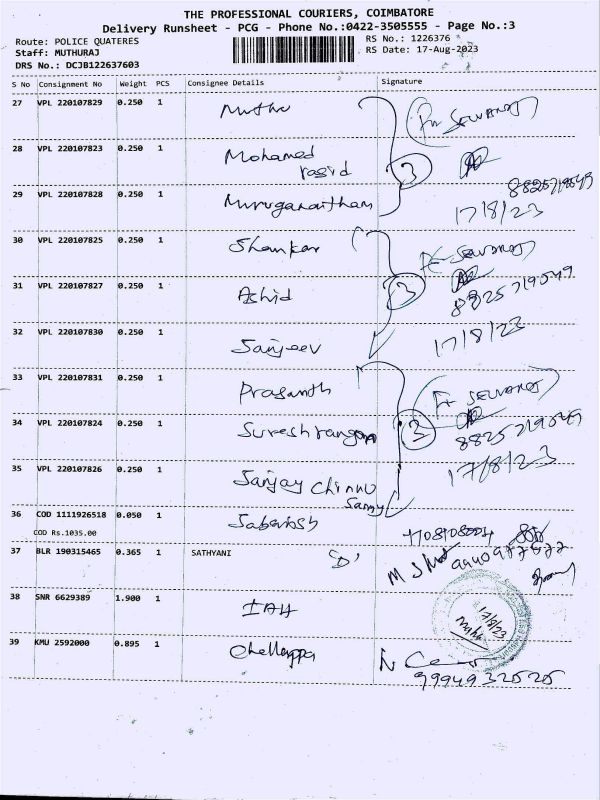 THE PROFESSIONAL COURIERS, COIMBATORE
Delivery Runsheet - PCG - Phone No.:0422-3505555 - Page No.:3
Route: POLICE QUATERES
RS No.: 1226376
Staff: MUTHURAJ
RS Date: 17-Aug-2023
DRS No.: DCJB122637603
S No Consignment No Weight PCS Consignee Details Signature
27 VPL 220107829 0.250 1 Muthu
28 VPL 220107823 0.250 1 Mohamed rasid 3
29 VPL 220107828 0.250 1 Muruganantham 8825719549
17/8/23
30 VPL 220107825 0.250 1 Shankar
31 VPL 220107827 0.250 1 Ashid 3 8825719549
32 VPL 220107830 0.250 1 Sanjeev 17/8/23
33 VPL 220107831 0.250 1 Prasanth
34 VPL 220107824 0.250 1 3 8825719549
35 VPL 220107826 0.250 1 Sanjay Chinnu Samy 17/8/23
36 COD 1111926518 0.050 1
COD Rs.1035.00
37 BLR 190315465 0.365 1 SATHYANI "D"
38 SNR 6629389 1.900 1
17/8/23
39 KMU 2592000 0.895 1 Chellappa